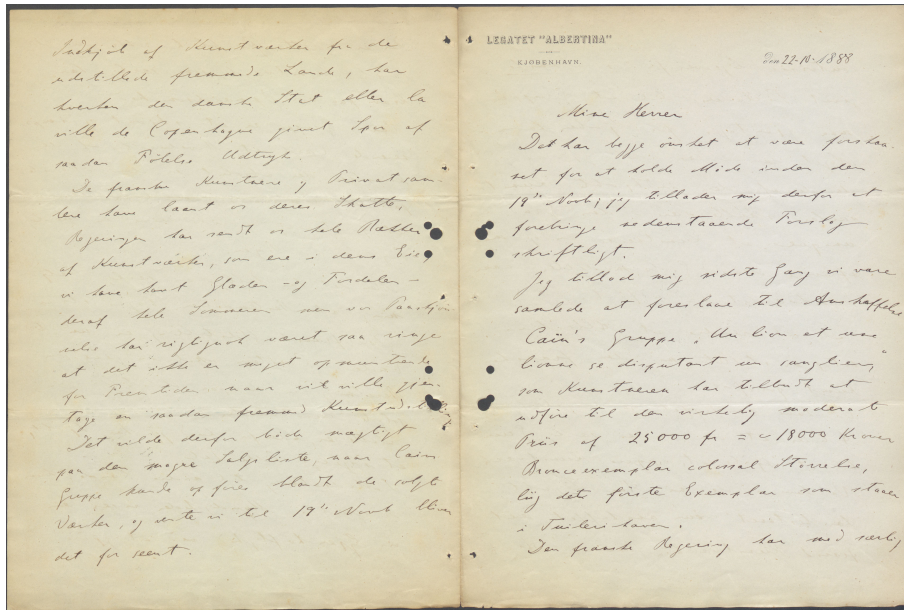 Indkjöb af Kunstværker fra de
udstillede fremmede Lande, har
hverken den danske Stat eller la
ville de Copenhague givet Spor af
saadan Fölelse Udtryk.
De franske Kunstnere og Privatsam-
lere have laant os deres Skatte,
Regeringen har sendt os hele Rækker
af Kunstværker, som ere i dens Eie,
vi have havt Glæden - og Fordelen -
deraf hele Sommeren men vor Paaskjön-
nelse har rigtignok været saa ringe
at det ikke er meget opmuntrende
for Fremtiden naar vi ville gjen-
tage en saadan fremmed Kunstudstilling
Det vilde derfor böde mægtigt
paa den magre Salgsliste, naar Cains
Gruppe kunde opföres blandt de solgte
Værker, og vente vi til 19de Novb bliver
det for seent.
LEGATET "ALBERTINA"
KJÖBENHAVN.
Den 22-10-1888
Mine Herrer
Det har begge önsket at være forskaa-
net for at holde Möde inden den
19de Novb; jeg tillader mig derfor at
forebringe nedenstaaende Forslag
skriftligt.
Jeg tillod mig sidste Gang vi vare
samlede at foreslaae til Anskaffelse
Caïn's Gruppe "Un lion et une
lionne se disputant un sanglier,"
som Kunstneren har tilbudt at
udföre til den virkelig moderate
Priis af 25000 fr = 18000 Kroner
Bronceexemplar colossal Störrelse,
liig dets förste Exemplar som staaer
i Tuilerihaven.
Den franske Regering har med særlig